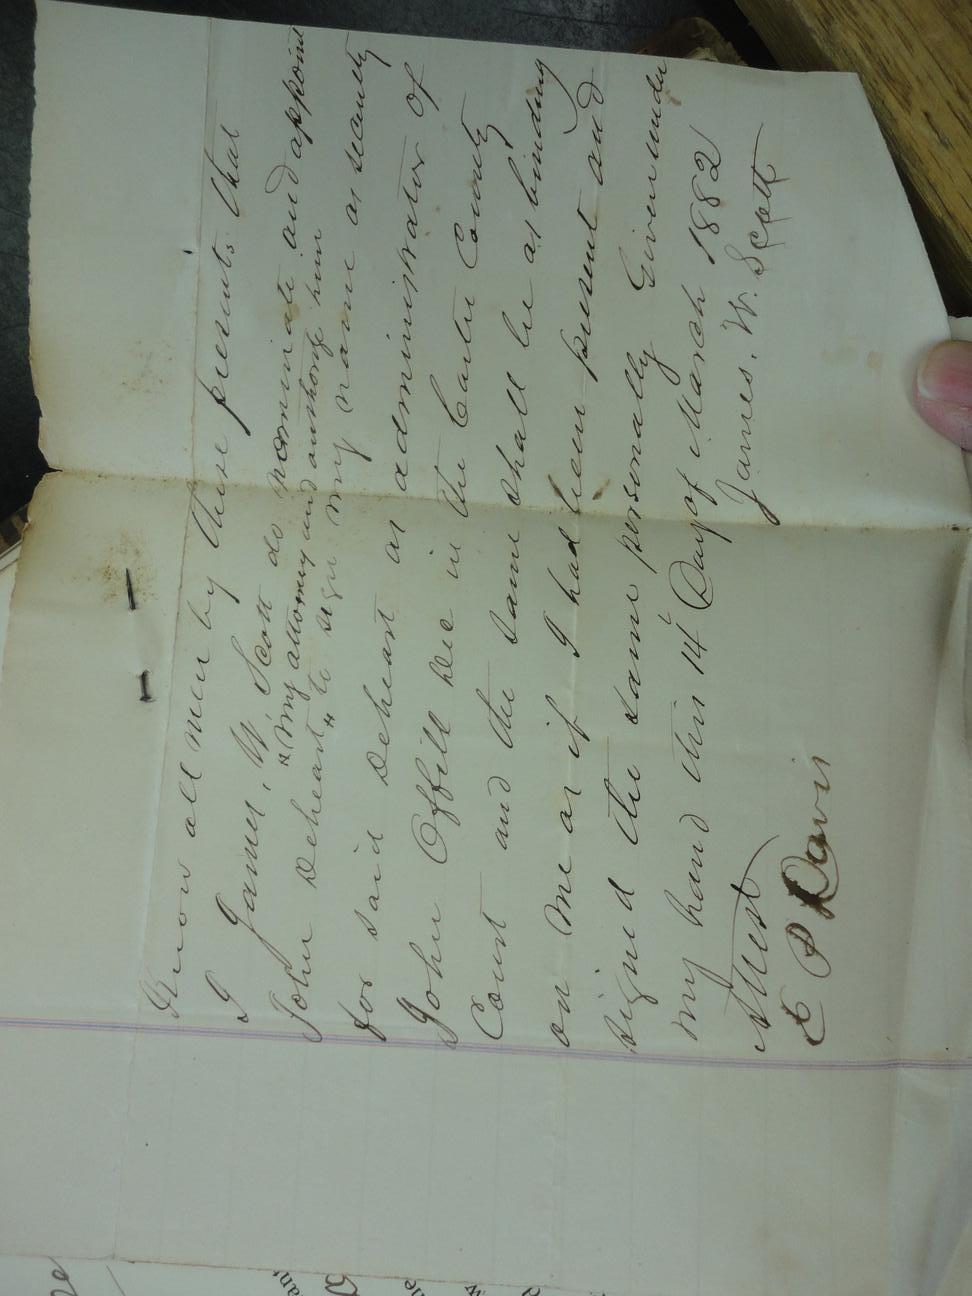 Know all men by these presents that
I James, W. Scott do nominate and appoint
"my attorney and authorize him
John Deheart " to sign my name as security
for said Deheart as administrator of
John Offill Dec in the Carter County
Court and the same shall be as binding
on me as if I had been present and
signed the same personally Given under
my hand this 14 Day of March 1882
James. W. Scott
Attest
E P Davis